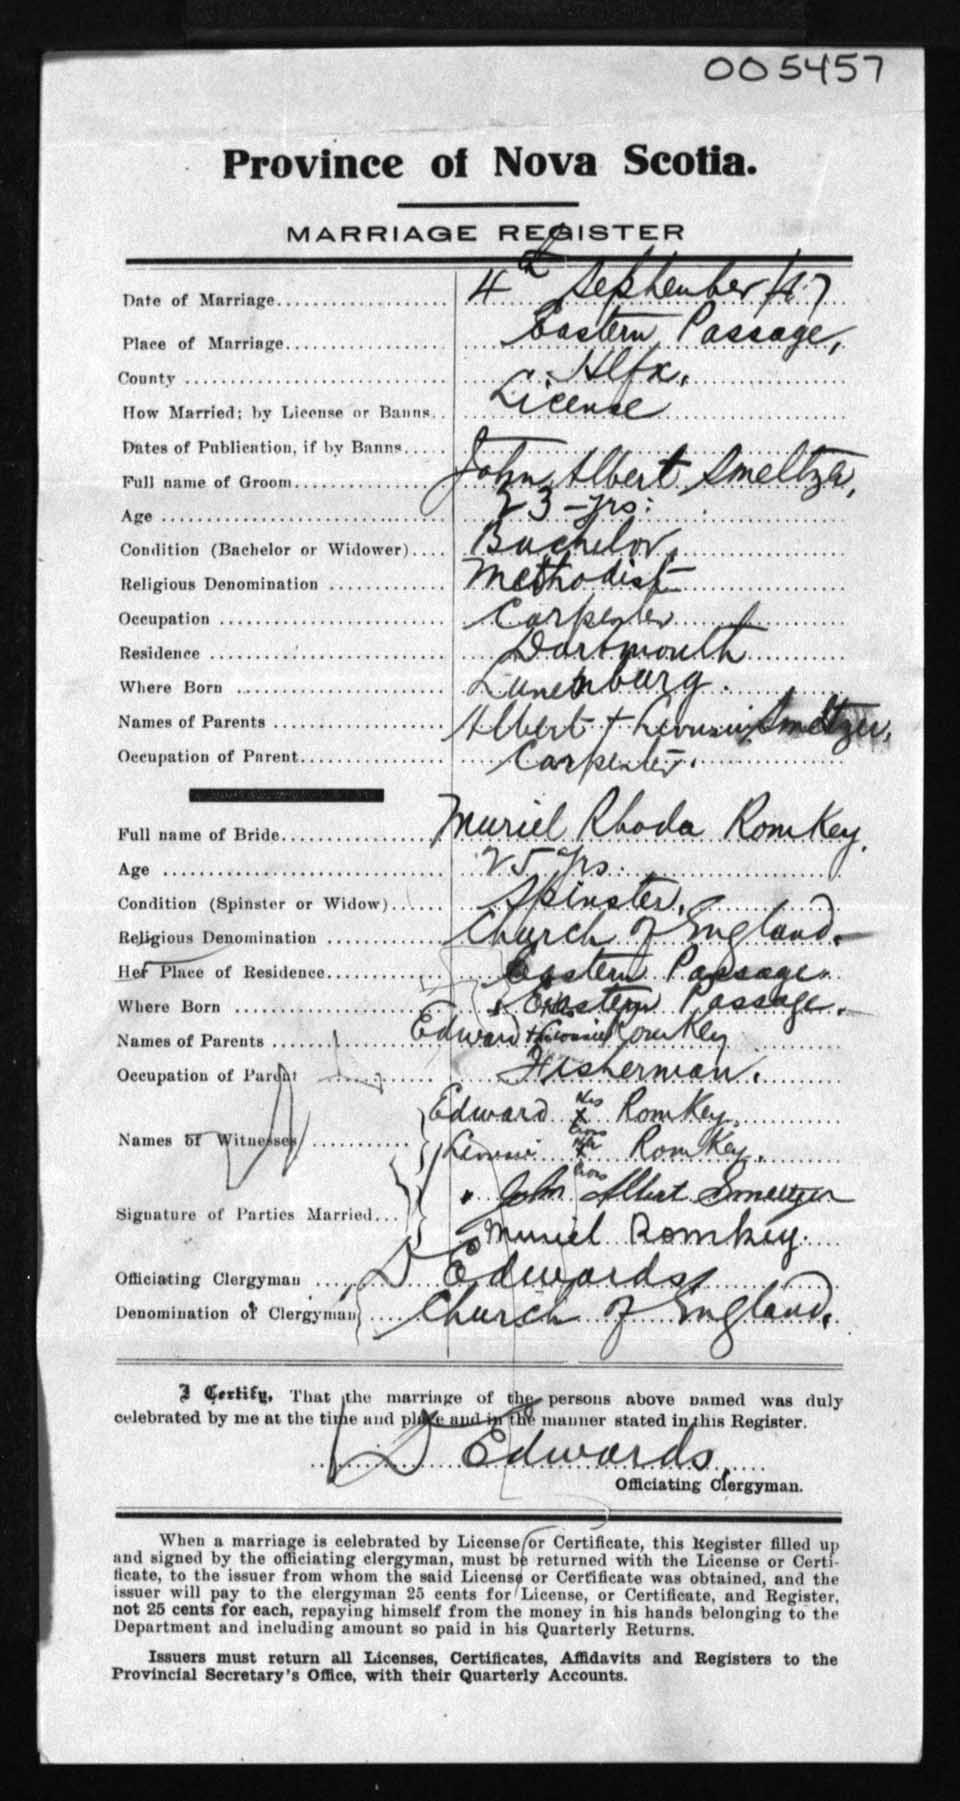 005457
Province of Nova Scotia.
MARRIAGE REGISTER
Date of Marriage 4th September
Place of Marriage Eastern Passage,
County Hlfx.
How Married; by License or Banns License
Dates of Publication, if by Banns
Full name of Groom John Albert Smeltzer,
Age 23 - yrs:
Condition (Bachelor or Widower) Bachelor,
Religious Denomination Methodist
Occupation Carpenter
Residence Dartmouth
Where Born Lunenburg.
Names of Parents Albert + Smeltzer,
Occupation of Parent Carpenter.
Full name of Bride Muriel Rhoda Romkey,
Age 25 yrs.
Condition (Spinster or Widow) Spinster,
Religious Denomination Church of England.
Her Place of Residence Eastern Passage
Where Born Eastern Passage.
Names of Parents Edward + Romkey
Occupation of Parent Fisherman.
Names of Witnesses Edward his x cross Romkey,
her x cross Romkey.
Signature of Parties Married John Albert Smeltzer
Muriel Romkey.
Officiating Clergyman D Edwards
Denomination of Clergyman Church of England.
I Certify, That the marriage of the persons above named was duly
celebrated by me at the time and place and in the manner stated in this Register.
D Edwards,
Officiating Clergyman.
When a marriage is celebrated by License or Certificate, this Register filled up
and signed by the officiating clergyman, must be returned with the License or Certi-
ficate, to the issuer from whom the said License or Certificate was obtained, and the
issuer will pay to the clergyman 25 cents for License, or Certificate, and Register,
not 25 cents for each, repaying himself from the money in his hands belonging to the
Department and including amount so paid in his Quarterly Returns.
Issuers must return all Licenses, Certificates, Affidavits and Registers to the
Provincial Secretary's Office, with their Quarterly Accounts.